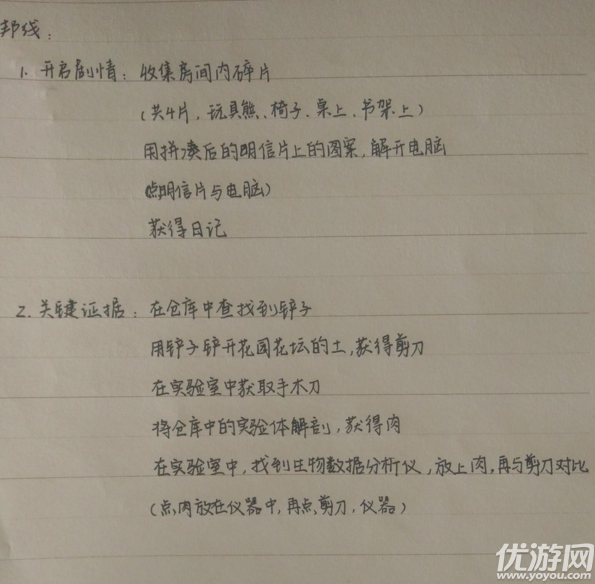 邦线：
1. 开启剧情：收集房间内碎片
（共4片，玩具熊、椅子、桌上、书架上）
用拼凑后的明信片上的图案，解开电脑
（点明信片与电脑）
获得日记
2. 关键证据：在仓库中查找到铲子
用铲子铲开花园花坛的土，获得剪刀
在实验室中获取手术刀
将仓库中的实验体解剖，获得肉
在实验室中，找到生物数据分析仪，放上肉，再与剪刀对比
（点肉放在仪器中，再点剪刀，仪器）
优游网
www.yoyou.com